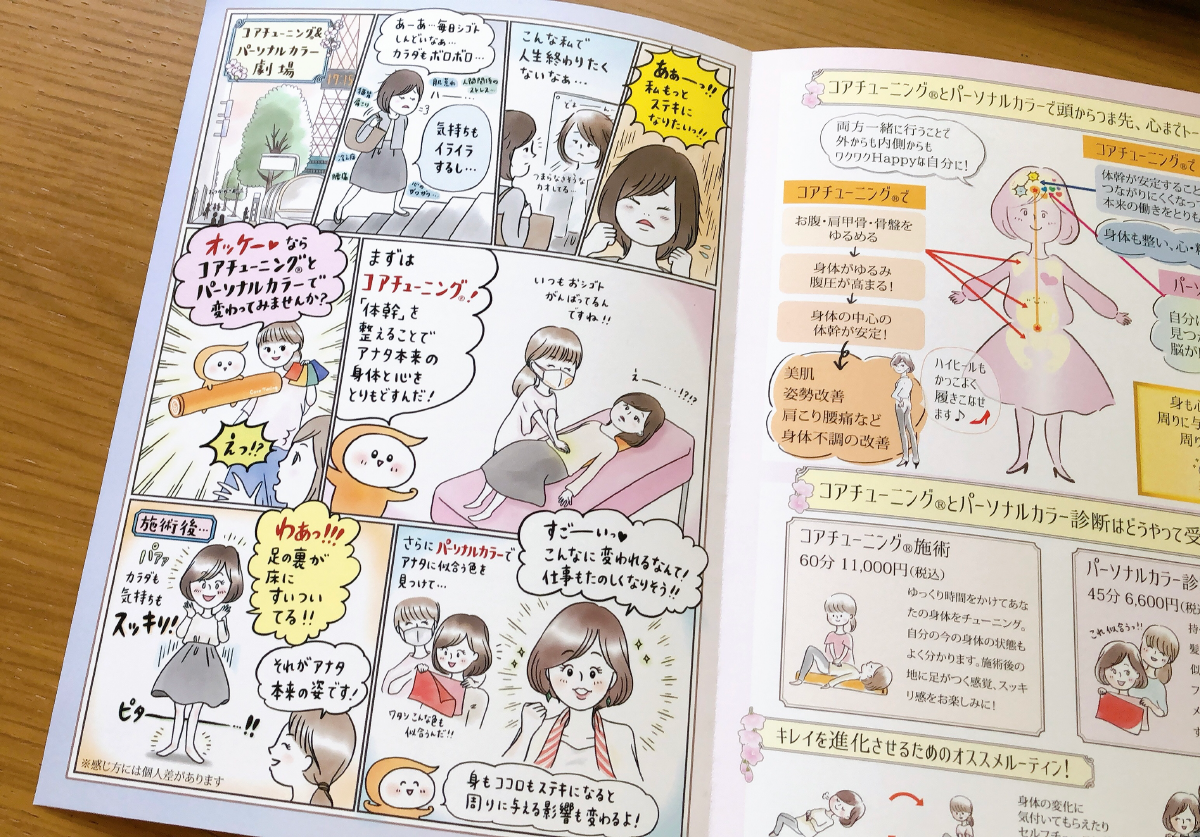 コアチューニング&
パーソナルカラー
劇場
あーあ…毎日シゴト
しんどいなぁ…
カラダもボロボロ…
肌荒れ
人間関係の
ストレス…
ハー……
頭痛
肩こり
気持ちも
イライラ
するし…
冷え症
腰痛
心の
ザワザワ…
こんな私で
人生終わりたく
ないなぁ…
つまらなさそうな
カオしてる…
あぁーっ!!
私もっと
ステキに
なりたいっ!!
オッケー♥なら
コアチューニング®と
パーソナルカラーで
変わってみませんか?
えっ!?
まずは
コアチューニング®!
「体幹」を
整えることで
アナタ本来の
身体と心を
とりもどすんだ!
いつもおシゴト
がんばってるん
ですね!!
えー…!?!?
施術後…
パァッ
カラダも
気持ちも
スッキリ!
ピター……!!
わあっ!!!
足の裏が
床に
すいつい
てる!!
それがアナタ
本来の姿です!
※感じ方には個人差があります
さらにパーソナルカラーで
アナタに似合う色を
見つけて…
ワタシこんな色も
似合うんだ!!
すごーいっ♥
こんなに変われるなんて!
仕事もたのしくなりそう!!
身もココロもステキになると
周りに与える影響も変わるよ!
コアチューニング®とパーソナルカラーで頭からつま先、心までト
両方一緒に行うことで
外からも内側からも
ワクワクHappyな自分に!
コアチューニング®で
お腹・肩甲骨・骨盤を
ゆるめる
身体がゆるみ
腹圧が高まる!
身体の中心の
体幹が安定!
美肌
姿勢改善
肩こり腰痛など
身体不調の改善
ハイヒールも
かっこよく
履きこなせ
ます♪
コアチューニング®で
体幹が安定するこ
つながりにくくなっ
本来の働きをとり
身体も整い、心・
パーソ
自分に
見つか
脳が
身も心
周りに与
周り
コアチューニング®とパーソナルカラー診断はどうやって受
コアチューニング®施術
60分 11,000円(税込)
ゆっくり時間をかけてあな
たの身体をチューニング。
自分の今の身体の状態も
よく分かります。施術後の
地に足がつく感覚、スッキ
リ感をお楽しみに!
パーソナルカラー診
45分 6,600円(税
これ似合うっ!!
持
髪
キレイを進化させるためのオススメルーティン!
身体の変化に
気付いてもらえたり
セルフチュー